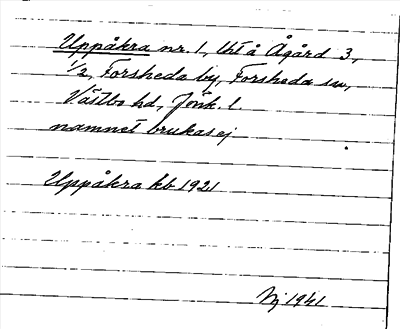 Uppåkra nr. 1, Uti å Ågård 3,
1/2, Forsheda by, Forsheda sn,
Västbo hd, Jönk. l.
namnet brukas ej
Uppåkra kb 1921
1941